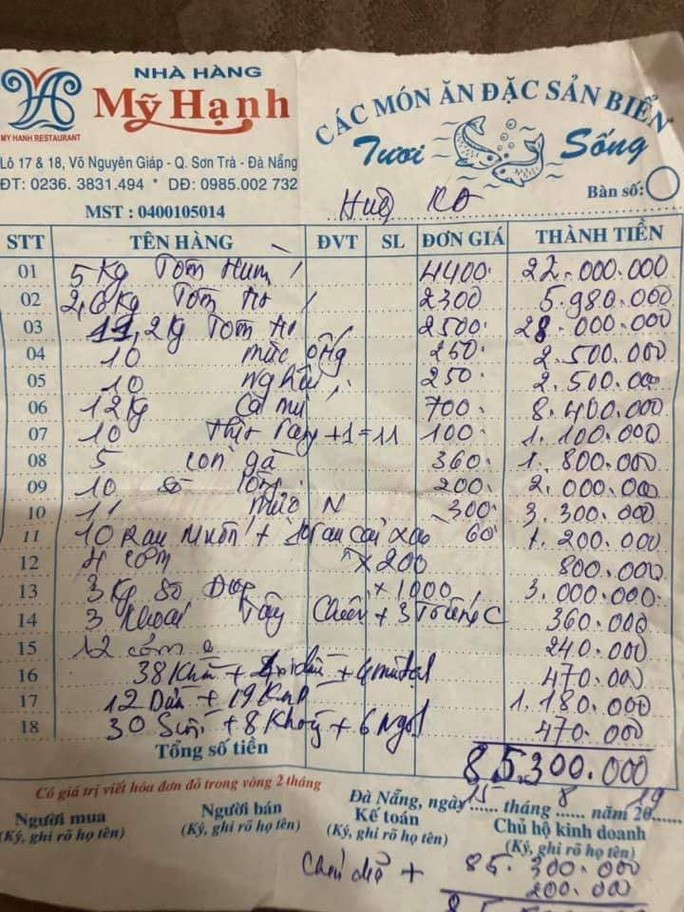 NHÀ HÀNG
Mỹ Hạnh
MY HANH RESTAURANT
CÁC MÓN ĂN ĐẶC SẢN BIỂN
Tươi Sống
Lô 17 & 18, Võ Nguyên Giáp - Q. Sơn Trà - Đà Nẵng
ĐT: 0236. 3831.494 * DĐ: 0985.002 732
Bàn số:
MST : 0400105014
STT TÊN HÀNG ĐVT SL ĐƠN GIÁ THÀNH TIỀN
01 5 Kg Tôm Hum 4400 22.000.000
02 2,6 Kg Tôm 2300 5.980.000
03 11,2 Kg Tom 2500 28.000.000
04 10 mực ống 250 2.500.000
05 10 nghêu 250 2.500.000
06 12 Kg Cá mú 700 8.400.000
07 10 +1=11 100 1.100.000
08 5 con gà 360 1.800.000
09 10 sò 200 2.000.000
10 11 mực N 300 3.300.000
11 10 Rau Muốn + 10 rau cải xào 60 1.200.000
12 4 cơm x 200 800.000
13 3 Kg Sò x 1000 3.000.000
14 3 Khoai Tây Chiên + 3 Trứng C 360.000
15 12 cơm 240.000
16 38 Khăn + 470.000
17 12 + 19 1.180.000
18 30 + 8 + 6 470.000
Tổng số tiền 85.300.000
Có giá trị viết hóa đơn đỏ trong vòng 2 tháng
Đà Nẵng, ngày 15 tháng 8 năm 2019
Người mua Người bán Kế toán Chủ hộ kinh doanh
(Ký, ghi rõ họ tên) (Ký, ghi rõ họ tên) (Ký, ghi rõ họ tên) (Ký, ghi rõ họ tên)
+ 85.300.000
200.000